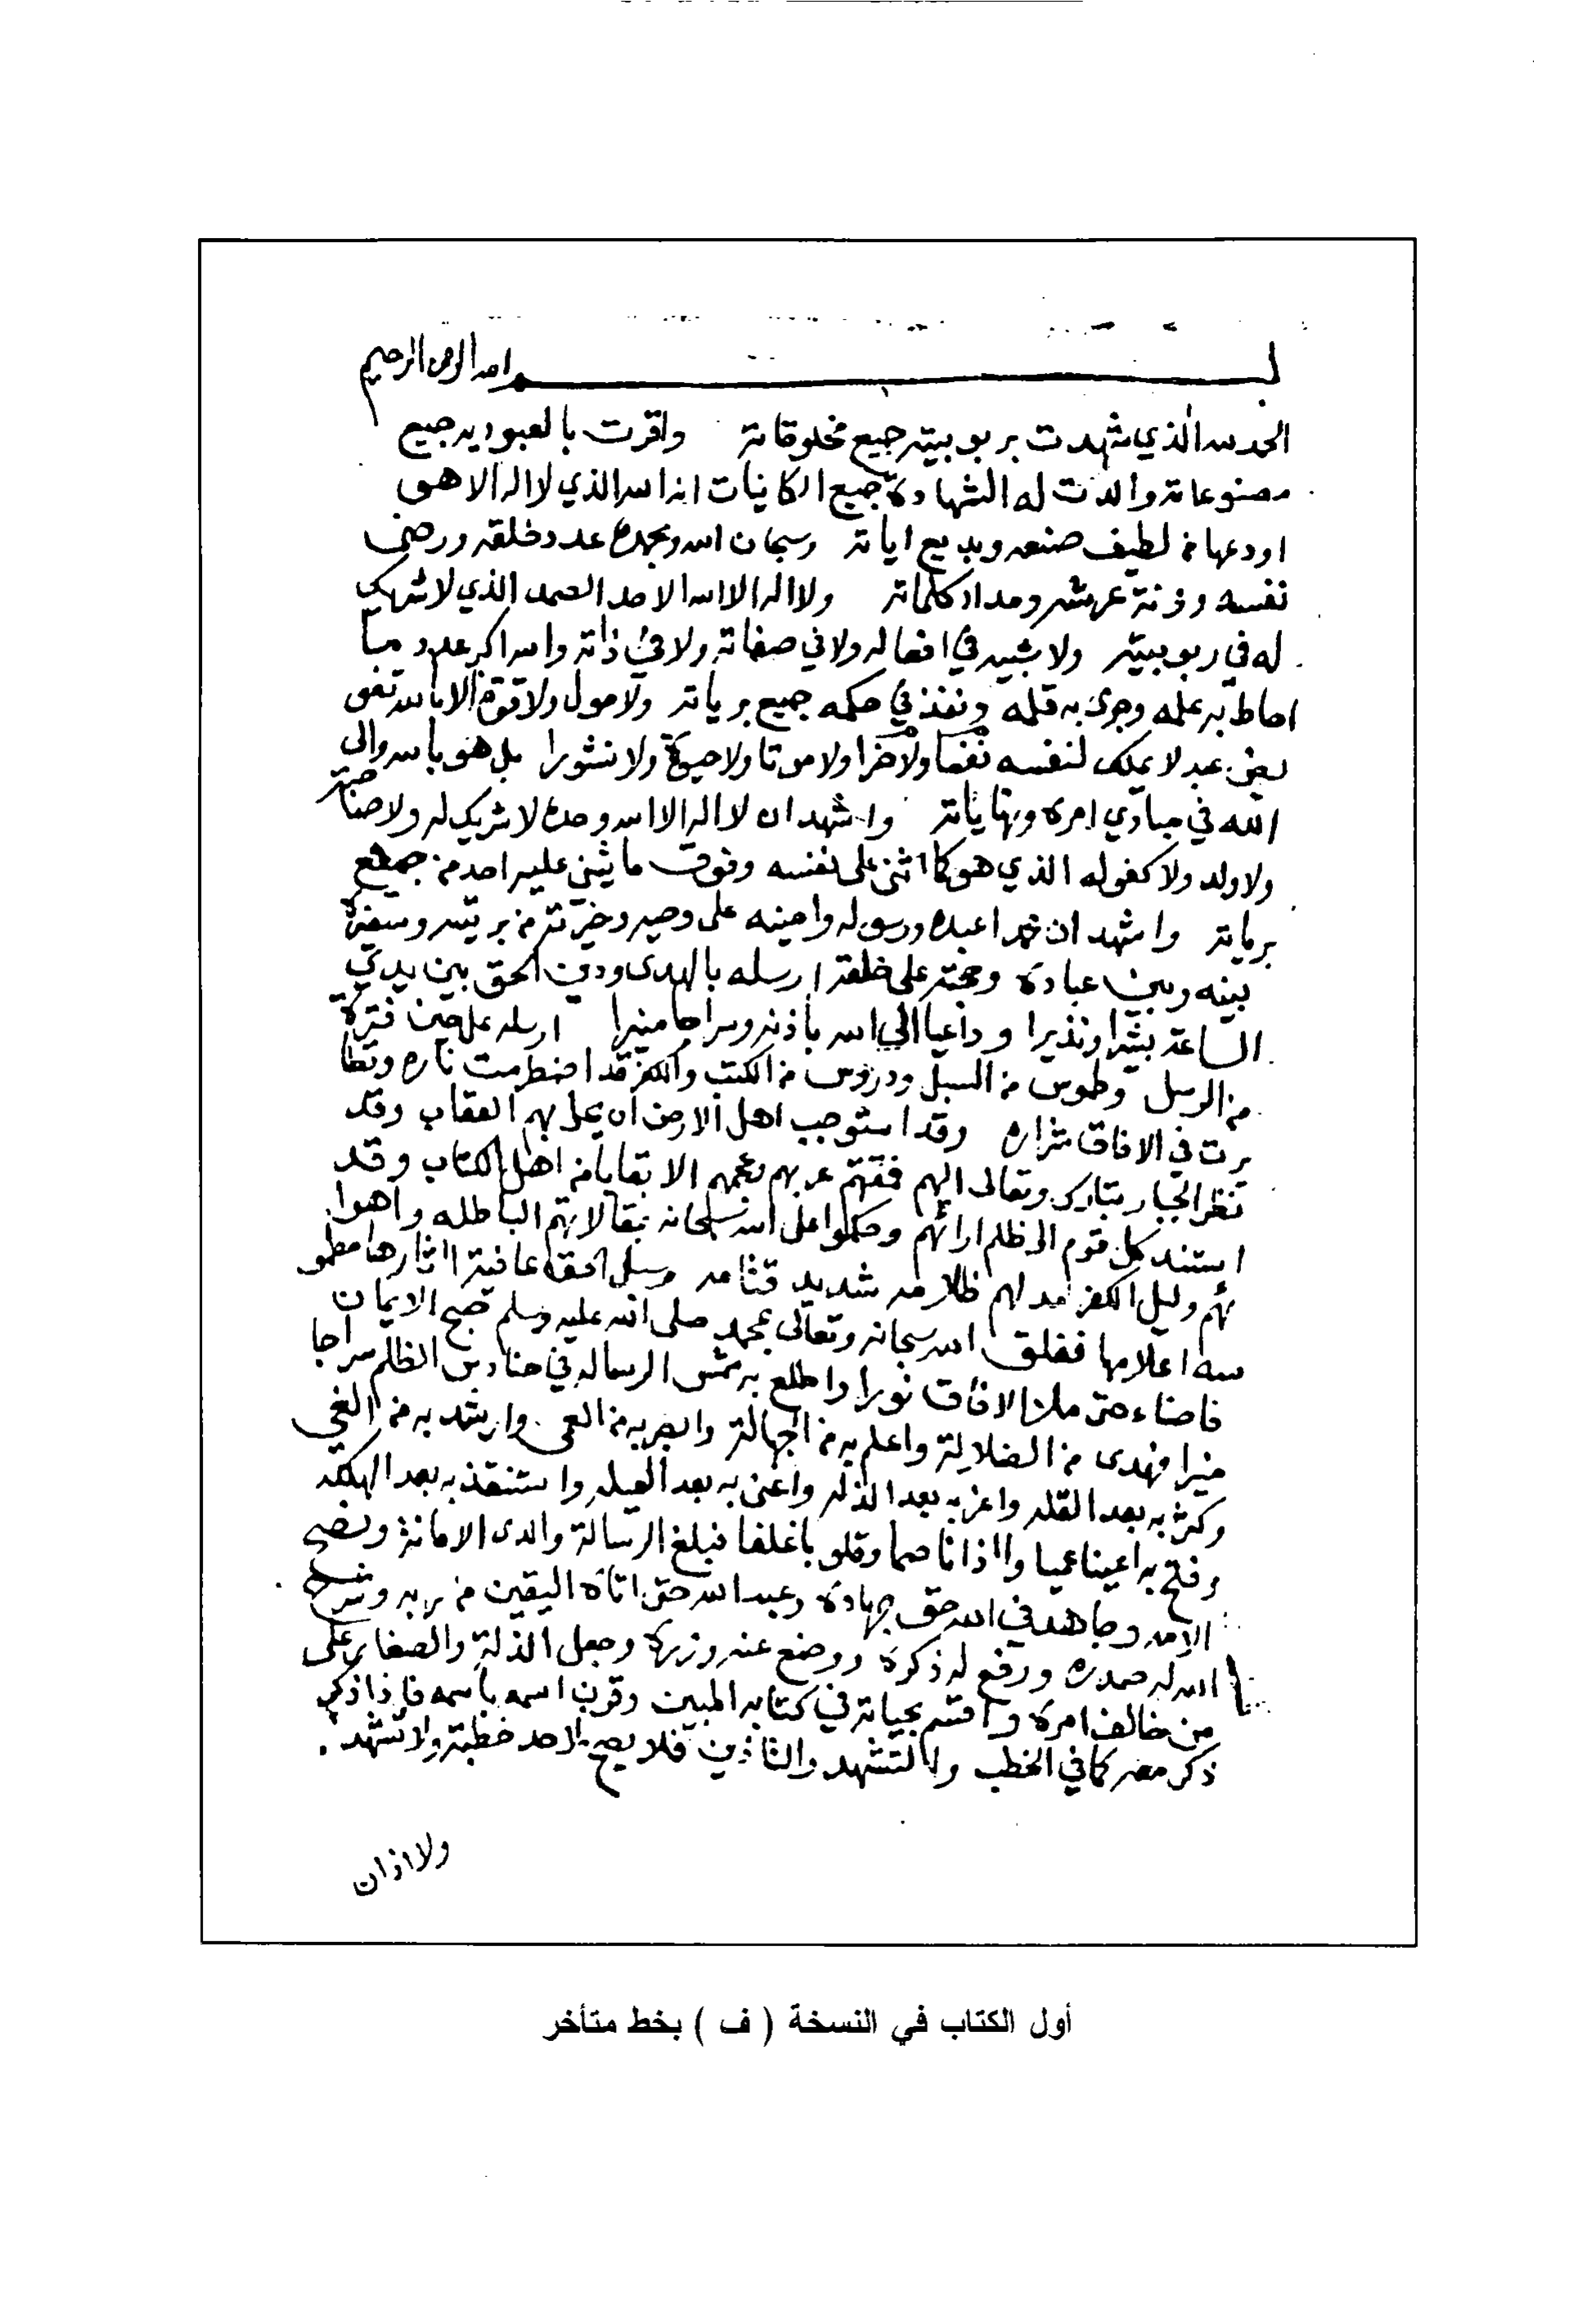 بسم الله الرحمن الرحيم
الحمد لله الذي شهدت بربوبيته جميع مخلوقاته واقرت بالعبوديه جميع
مصنوعاته وادت له الشهادة جميع الكاينات انه الله الذي لا اله الا هو بما
اودعها من لطيف صنعه وبديع اياته وسبحان الله وبحمده عدد خلقه ورضى
نفسه وزنة عرشه ومداد كلماته ولا اله الا الله الاحد الصمد الذي لا شريك
له في ربوبيته ولا شبيه في افعاله ولا في صفاته ولا في ذاته والله اكبر عدد ما
احاط به علمه وجرى به قلمه ونفذ في حكمه جميع برياته ولا حول ولا قوة الا بالله تفو
يض عبد لا يملك لنفسه نفعا ولا ضرا ولا موتا ولا حيوة ولا نشورا بل هو بالله والى
الله في مبادي امره ونهاياته واشهد ان لا اله الا الله وحده لا شريك له ولا صاحبة
ولا ولد ولا كفو له الذي هو كما اثنى على نفسه وفوق ما يثني عليه احد من جميع
برياته واشهد ان محمدا عبده ورسوله وامينه على وحيه وخيرته من بريته وسفيره
بينه وبين عباده وحجته على خلقه ارسله بالهدى ودين الحق بين يدي
الساعة بشيرا ونذيرا وداعيا الى الله باذنه وسراجا منيرا ارسله على حين فترة
من الرسل وطموس من السبل ودروس من الكتب والكفر قد اضطرمت ناره وتطا
يرت في الافاق شراره وقد استوجب اهل الارض ان يحل بهم العقاب وقد
نظر الجبار تبارك وتعالى اليهم فمقتهم عربهم وعجمهم الا بقايا من اهل الكتاب وقد
استند كل قوم الى ظلم ارائهم وحكموا على الله سبحانه بمقالاتهم الباطله واهوا
ئهم وليل الكفر مدلهم ظلامه شديد قتامه وسبل الحق عافية اثارها مطمو
سه اعلامها ففلق الله سبحانه وتعالى بمحمد صلى الله عليه وسلم صبح الايمان
فاضاء حتى ملا الافاق نورا واطلع به شمس الرساله في حنادس الظلم سراجا
منيرا فهدى من الضلالة واعلم به من الجهالة وابصر به من العمى وارشد به من الغي
وكثر به بعد القله واعز به بعد الذله واغنى به بعد العيله واستنقذ به بعد الهلكه
وفتح به اعينا عميا واذانا صما وقلوبا غلفا فبلغ الرسالة وادى الامانة ونصح
الامه وجاهد في الله حق جهاده وعبد الله حتى اتاه اليقين من ربه وشرح
الله له صدره ورفع له ذكره ووضع عنه وزره وجعل الذلة والصغار على
من خالف امره واقسم بحياته في كتابه المبين وقرن اسمه باسمه فاذا ذكر
ذكر معه كما في الخطب والتشهد والتاذين فلا يصح لاحد خطبة ولا تشهد
ولا اذان
أول الكتاب في النسخة ( ف ) بخط متأخر